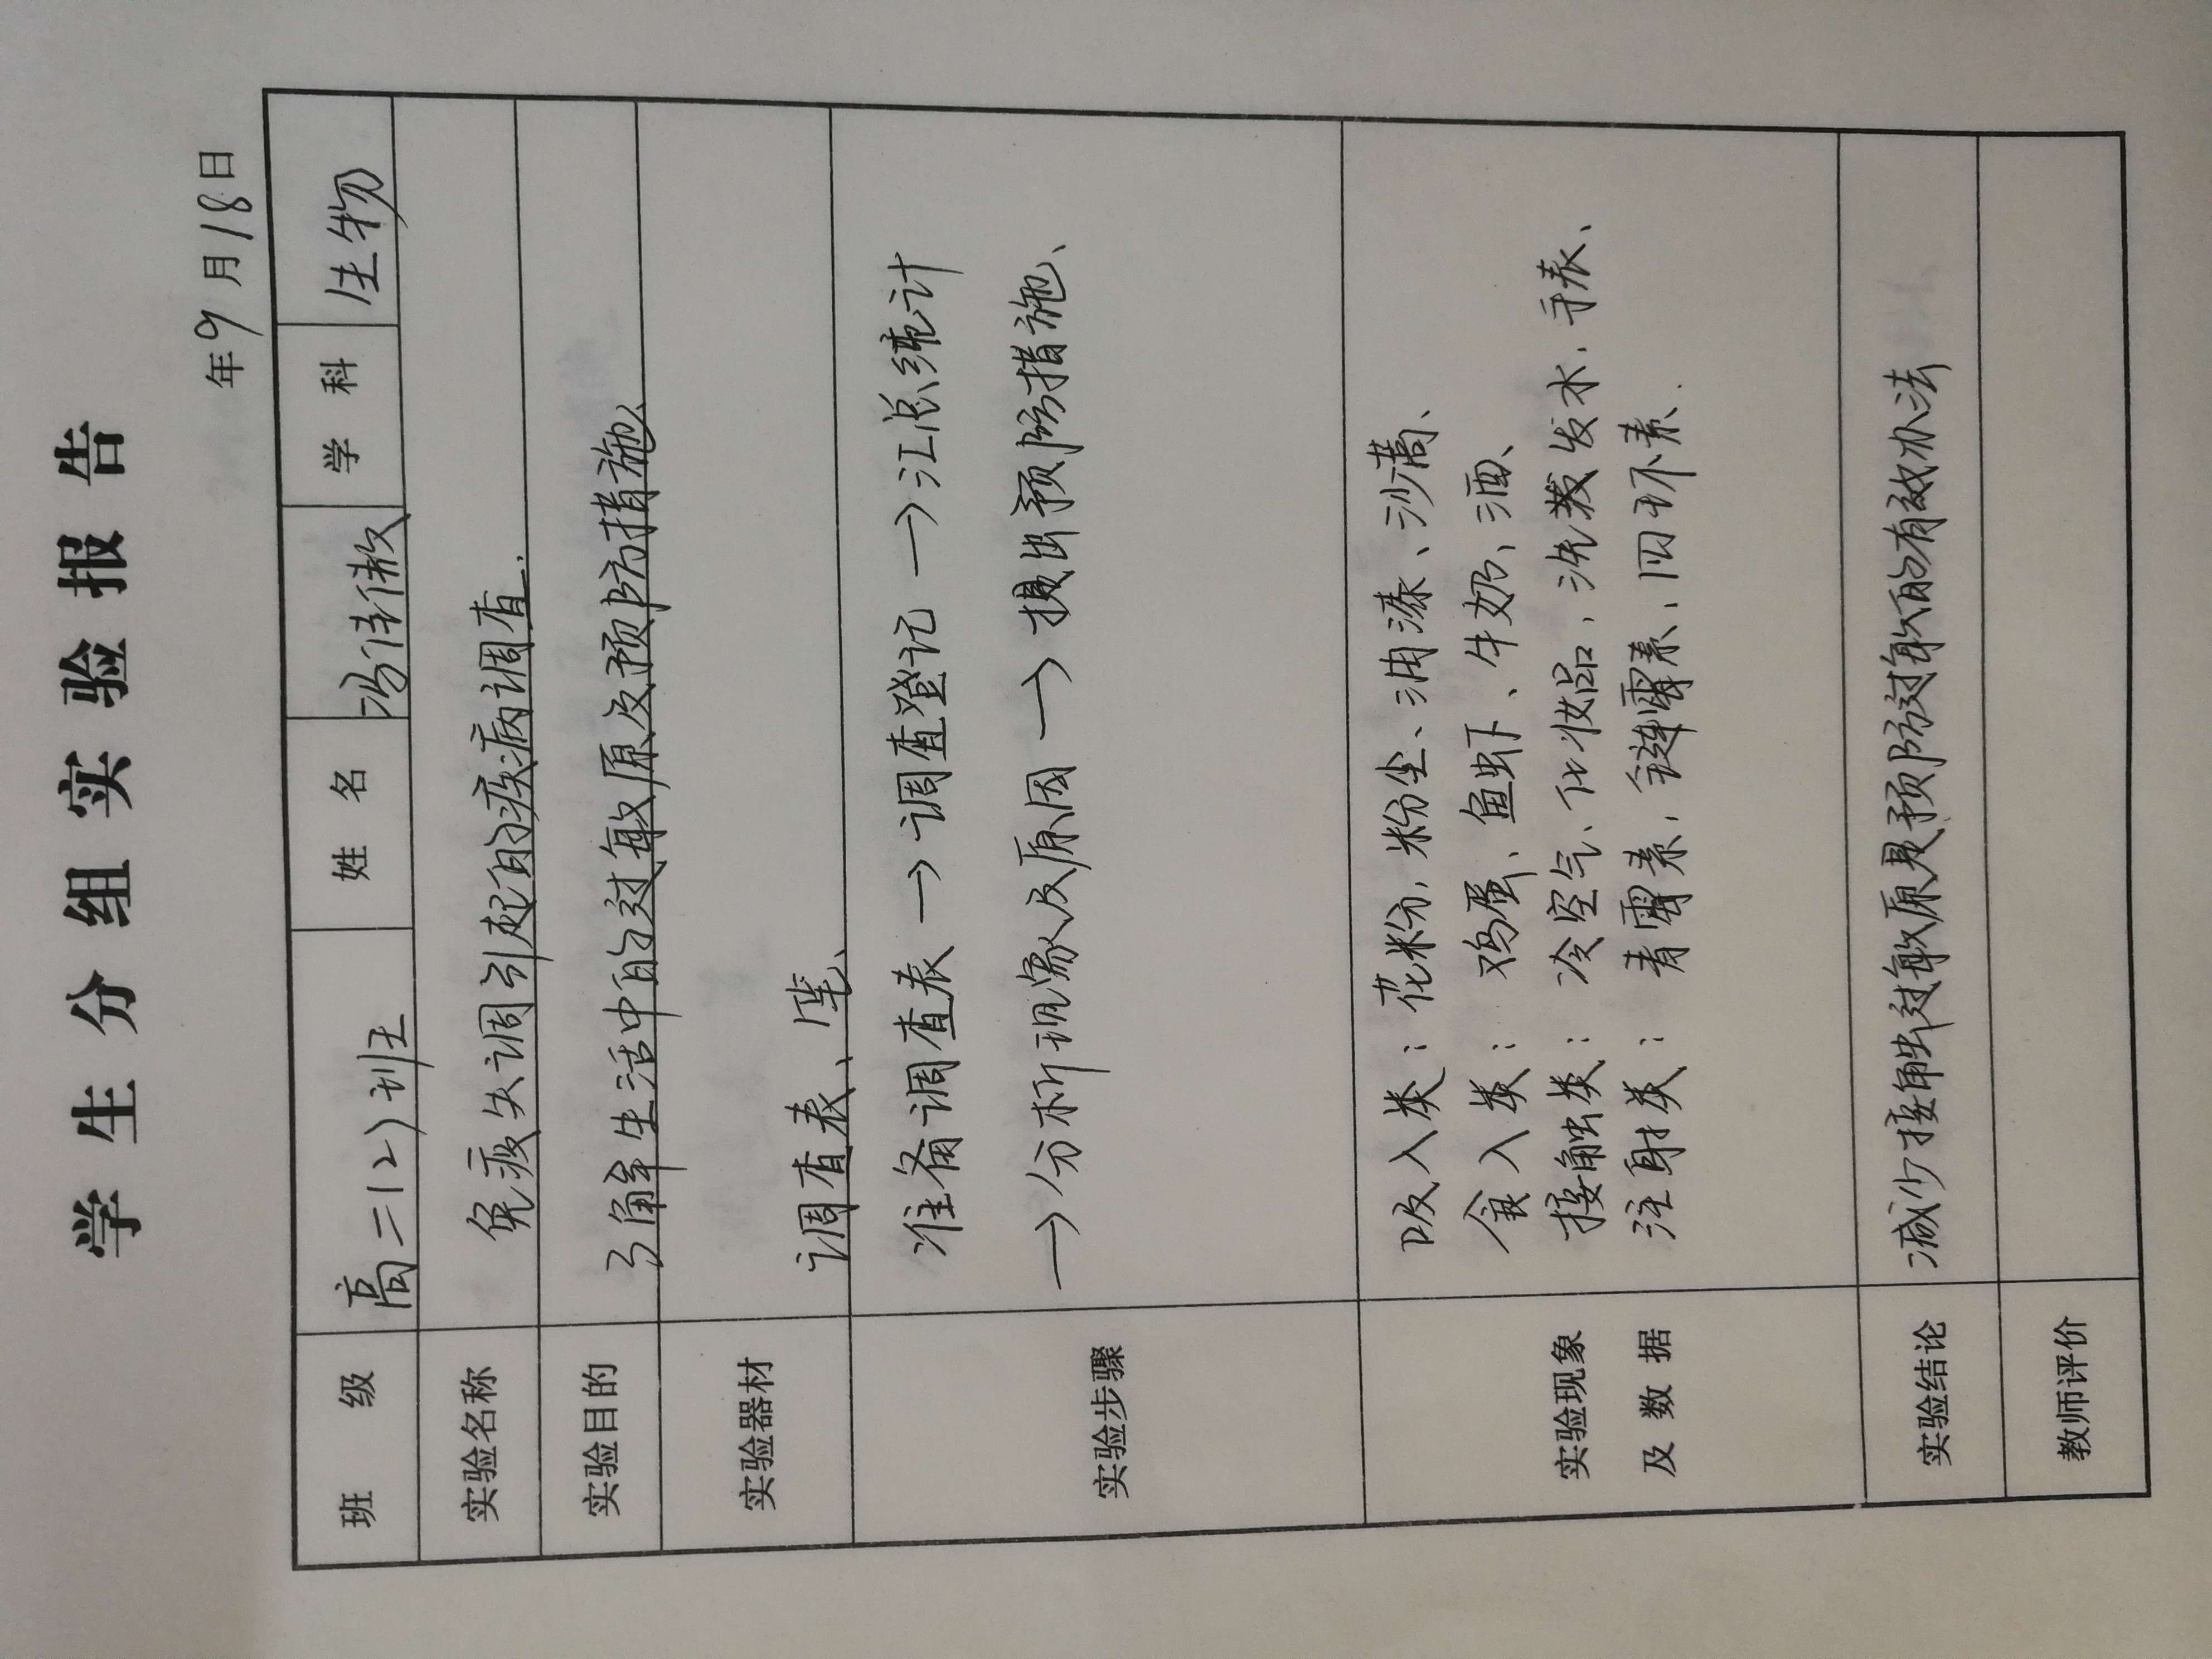 学生分组实验报告
年9月18日
班 级 高二(2)班 姓 名 冯佳傲 学 科 生物
实验名称 免疫失调引起的疾病调查.
实验目的 了解生活中的过敏原及预防措施、
实验器材 调查表、笔、
实验步骤 准备调查表→调查登记→汇总统计
→分析现象及原因→提出预防措施、
实验现象
及数据
吸入类:花粉,粉尘、油漆、沙蒿、
食入类:鸡蛋、鱼虾、牛奶、酒、
接触类:冷空气、化妆品,洗发水,手表、
注射类:青霉素,链霉素,四环素.
实验结论 减少接触过敏原是预防过敏的有效办法
教师评价